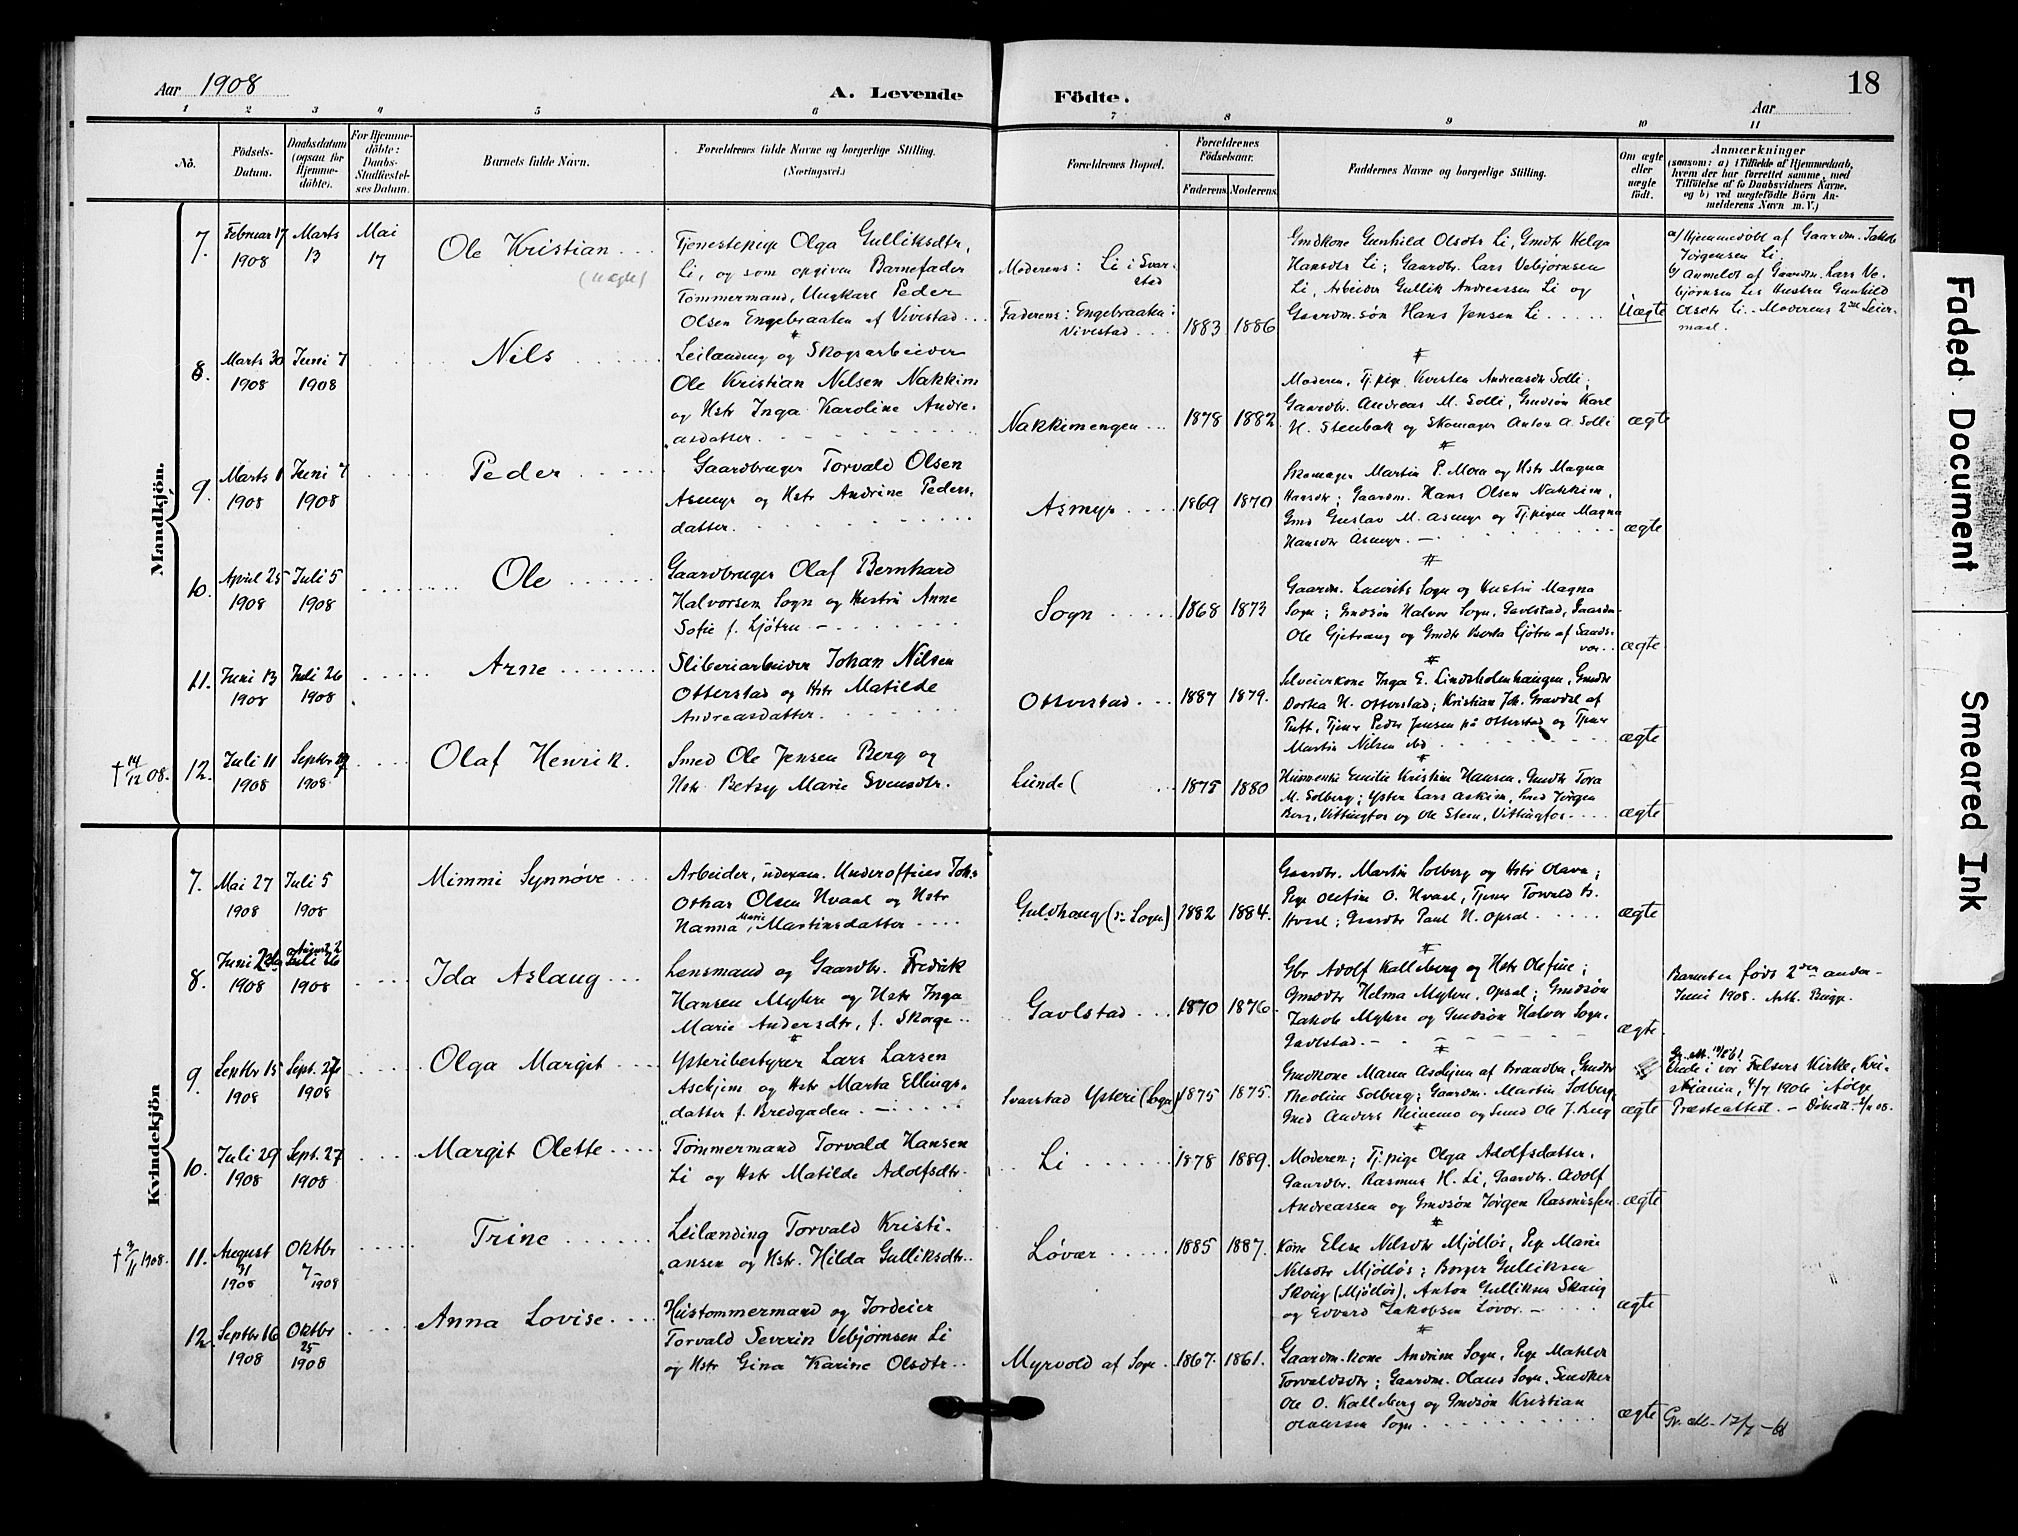 Aar 1908
A. Levende Födte.
18
Aar
1 2 3 4 5 6 7 8 9 10 11
No.
Födsels-Datum.
Daabsdatum (ogsaa för Hjemme-döbte).
For Hjemme-döbte: Daabs-Stadfæstel-ses Datum.
Barnets fulde Navn.
Forældrenes fulde Navne og borgerlige Stilling. (Næringsvei.)
Forældrenes Bopæl.
Forældrenes Födselsaar.
Faderens. Moderens.
Faddernes Navne og borgerlige Stilling.
Om ægte eller uægte födt.
Anmærkninger
(saasom: a) i Tilfælde af Hjemmedaab, hvem der har forrettet samme, med Tilföielse af to Daabsvidners Navne, og b) ved uægtefödte Börn An-melderens Navn m. V.)
Mandkjön.
7. Februar 17 1908
Marts 13
Mai 17
Ole Kristian
(uægte)
Tjenestepige Olga Gulliksdtr.
Li, og som opgiven Barnefader
Tömmermand, Ungkarl Peder
Olsen Engebraaten af Vivestad
Moderens: Li i Svar-stad
Faderens: Engebraaten: Vivestad
1883 1886
Gmdkone Gunhild Olsdtr Li, Gmdtr Helga
Hansdtr Li; Gaardbr. Lars Vebjørnsen
Li, Arbeider Gullik Andreassen Li og
Gaardm.søn Hans Jensen Li
Uægte
a/ Hjemmedøbt af Gaardm. Jakob
Jørgensen Li.
b/ Anmeldt af Gaardm. Lars Ve-
bjørnsen Lis Hustru Gunhild
Olsdtr Li. Moderens 2det Leier-
maal.
8. Marts 30 1908
Juni 7 1908
Nils
Leilænding og Skogsarbeider
Ole Kristian Nilsen Nakkim
og Hstr Inga Karoline Andre-
asdatter.
Nakkimengen
1878 1882
Moderen, Tj.pige Kirsten Andreasdtr Solli;
Gaardbr. Andreas M. Solli, Gmdsøn Karl
H. Stenbak og Skomager Anton A. Solli
ægte
9. Marts 1 1908
Juni 7 1908
Peder
Gaardbruger Torvald Olsen
Asmyr og Hstr Andrine Peders-
datter.
Asmyr
1869 1870
Skomager Martin P. Moen og Hstr Magna
Hansdtr; Gaardm. Hans Olsen Nakkim,
Gmd Gustav M. Asmyr og Tj.pigen Magna
Hansdtr Asmyr.
ægte
10. April 25 1908
Juli 5 1908
Ole
Gaardbruger Olaf Bernhard
Halvorsen Sogn og Hustru Anne
Sofie f. Ljøtru
Sogn
1868 1873
Gaardm. Laurits Sogn og Hustru Magna
Sogn; Gmdsøn Halvor Sogn, Gavlstad, Gaardm.
Ole Gjetrang og Gmdtr Berta Ljøtru af Sands-
vær.
ægte
11. Juni 13 1908
Juli 26 1908
Arne
Sliberiarbeider Johan Nilsen
Otterstad og Hstr Matilde
Andreasdatter.
Otterstad
1887 1879.
Selveierkone Inga E. Lindsholmhaugen, Gmdtr
Dortea N. Otterstad; Kristian Joh. Gravdal af
Tuft, Tjener Peder Jensen på Otterstad og Tjener
Martin Nilsen ibd
ægte
† 14/12 08.
12. Juli 11 1908
Septbr 27 1908
Olaf Henrik.
Smed Ole Jensen Berg og
Hstr Betsy Marie Svensdtr.
Lunde (
1875 1880
Emilie Kristine Hansen, Gmdtr Tora
M. Solberg; Yster Lars Askim, Smed Jørgen
Berg, Vittingfos og Ole Steen, Vittingfos.
ægte
Kvindekjön
7. Mai 27 1908
Juli 5 1908
Mimmi Synnøve
Arbeider, udexam. Underofficer Joh.
Oskar Olsen Hvaal og Hstr
Hanna Marie Martinsdatter
Guldhaug (i Sogn)
1882 1884.
Gaardbr. Martin Solberg og Hstr Olava;
Pige Olefine O. Hvaal, Tjener Torvald
Hvaal; Gaardbr Paul H. Opsal
ægte
8. Juni 1908
August 2
Juli 26 1908
Ida Aslaug
Lensmand og Gaardbr. Fredrik
Hansen Myhre og Hstr Inga
Marie Andersdtr, f. Skorge
Gavlstad
1870 1876
Gbr Adolf Kalleberg og Hstr Olefine;
Gmdtr Helma Myhre, Opsal; Gmdsøn
Jakob Myhre og Gmdsøn Halvor Sogn,
Gavlstad.
ægte
Barnet er født 2den anden
Juni 1908. Anth. Bugge.
9. Septbr 15 1908
Sept. 27 1908
Olga Margit
Ysteribestyrer Lars Larsen
Askjem og Hstr Marta Ellings-
datter f. Bredgaden
Svarstad Ysteri (Sogn)
1875 1875.
Gmdkone Maren Askjem af Brandbu, Gmdtr
Theoline Solberg; Gaardm. Martin Solberg,
Gmd Anders Heinemo og Smed Ole J. Berg
ægte
Gr. att. 19/8 61
Viede i Vor Frelsers Kirke, Kri-
stiania, 4/7 1906 ifølge
Præsteattest.
10. Juli 29 1908
Sept. 27 1908
Margit Olette
Tømmermand Torvald Hansen
Li og Hstr Matilde Adolfsdtr.
Li
1878 1889.
Moderen; Tj.pige Olga Adolfsdatter,
Gaardbr. Rasmus H. Li, Gaardbr. Adolf
Andreassen og Gmdsøn Jørgen Rasmussen
ægte
† 3/11 1908.
11. August 31 1908
Oktbr 7 1908
Trine
Leilænding Torvald Kristi-
ansen og Hstr. Hilda Gulliksdtr.
Løvær
1885 1887.
Kone Elise Nilsdtr Mjølløs, Pige Marie
Nilsdtr Mjølløs; Borger Gulliksen
Skaug (Mjølløs), Anton Gulliksen Skaug
og Edvard Jakobsen Løvær.
ægte
12. Septbr 16 1908
Oktbr 25 1908
Anna Lovise
Hustømmermand og Jordeier
Torvald Severin Vebjørnsen Li
og Hstr Gina Karine Olsdtr
Myrvold af Sogn
1867. 1861.
Gaardm.kone Andrine Sogn, Pige Matilde
Torvaldsdtr; Gaardm. Olaus Sogn, Snedker
Ole O. Kalleberg og Gmdsøn Kristian
Olaussen Sogn
ægte
Gr. att. 12/7 - 68
Faded Document
Smeared Ink